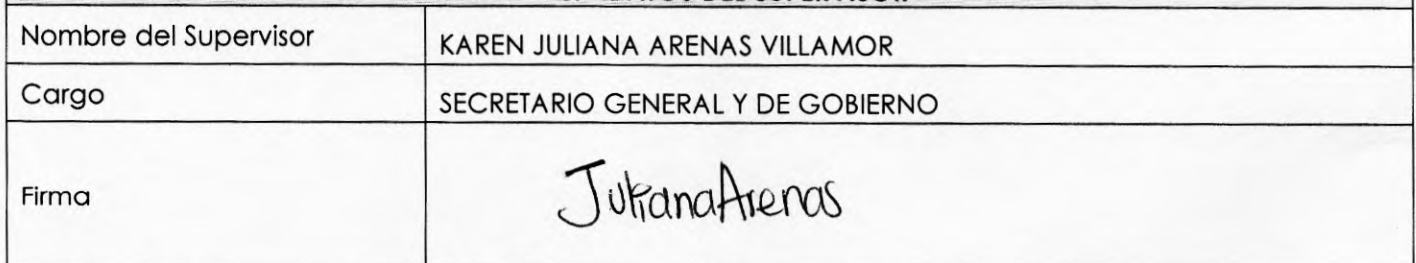 Nombre del Supervisor KAREN JULIANA ARENAS VILLAMOR
Cargo SECRETARIO GENERAL Y DE GOBIERNO
Firma JulianaArenas